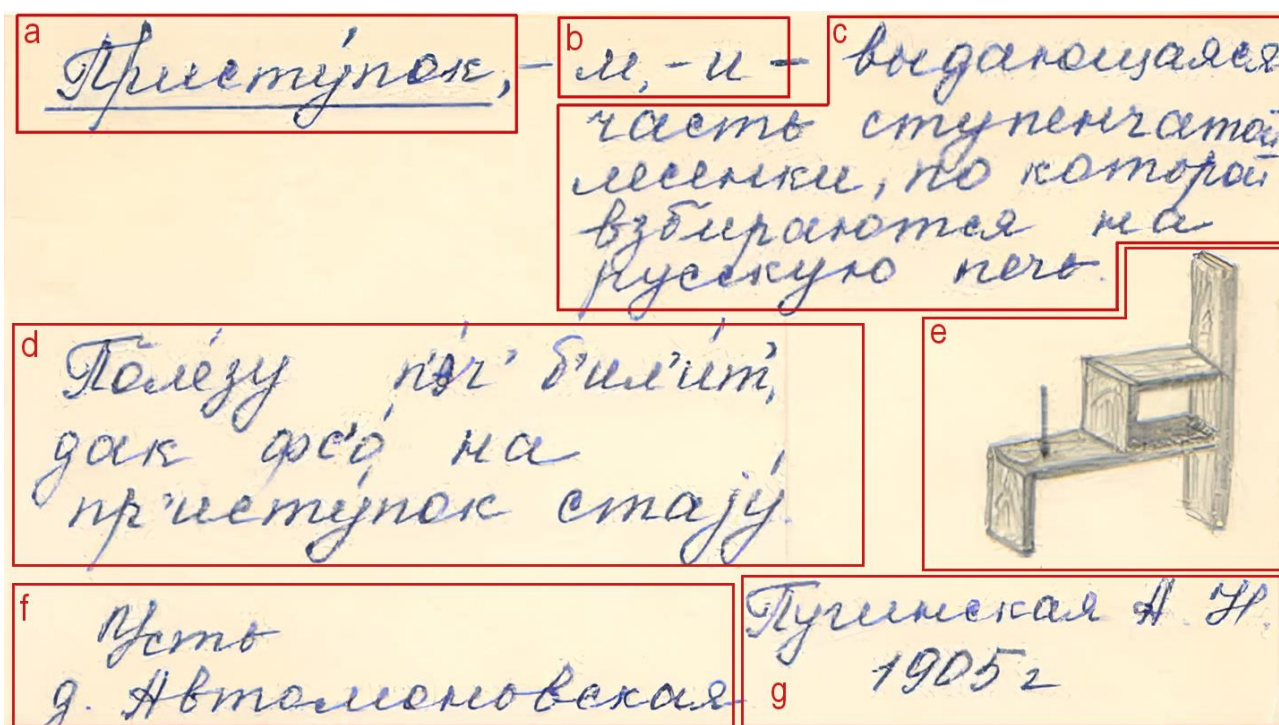 a
Присту́пок, -
b
м, -и -
c
выдающаяся
часть ступенчатой
лесенки, по которой
взбираются на
русскую печь.
d
Поле́зу п'е́ч' б'ил'и́т',
дак фс'о́ на
пр'исту́пок стаjу́.
e
f
Усть
д. Автомоновская
g
Пугинская А. Н.
1905 г